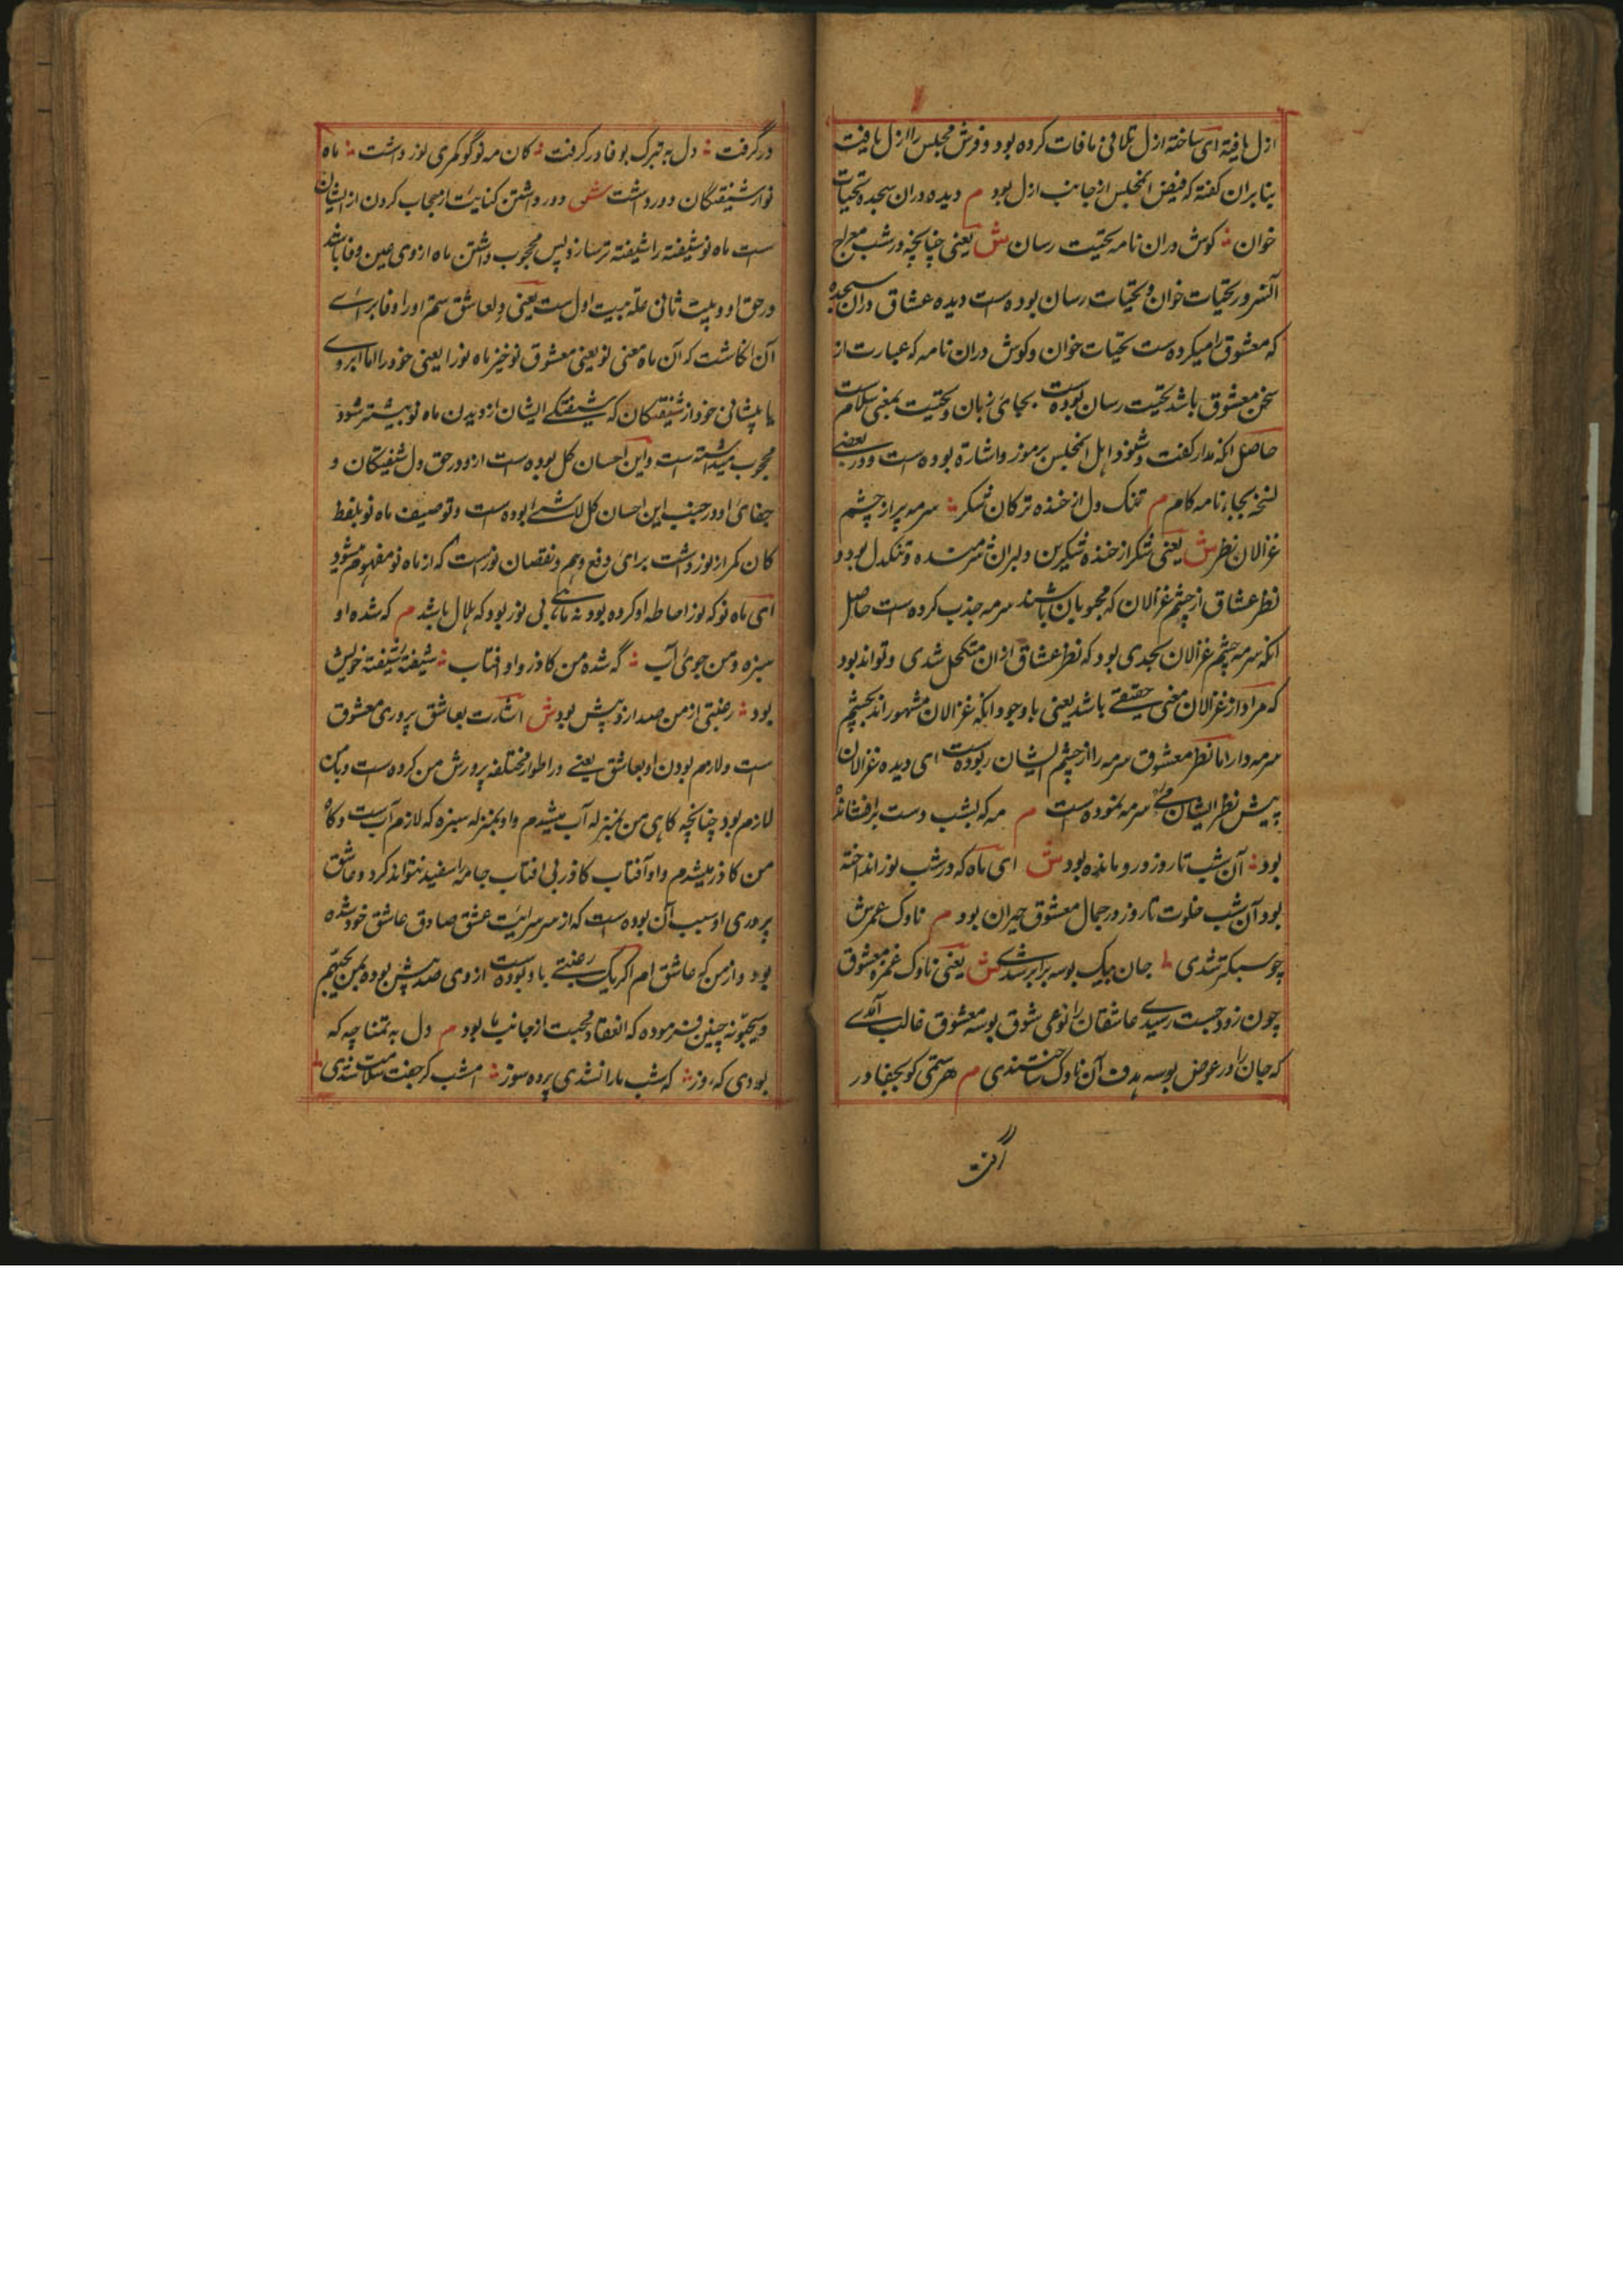 ازل یافته ای ساخته ازل تلافی مافات کرده بود و فرش مجلس را ازل یافت
بنابران گفته که فیض انمجلس از جانب ازل بود م دیده دران سجده تحیات
خوان ؞ کوش دران نامه تحیت رسان ش یعنی چنانچه در شب معراج
آنسرور تحیات خوان و تحیات رسان بوده است دیده عشاق دران سجده
که معشوق را میکرده ست تحیات خوان و کوش دران نامه که عبارت از
سخن معشوق باشد تحیت رسان بوده است بجای زبان و تحیت بمعنی سلامت
حاصل انکه مدار کفت و شنود اهل انمجلس برموز و اشاره بوده است و در بعضی
نسخه بجاء نامه کام م تنک دل از خنده ترکان شکر ؞ سرمه پر از چشم
غزالان نظر ش یعنی شکر از خنده شکرین دلبران شرمنده و تنکدل بود و
نظر عشاق از چشم غزالان که محبوبان باشند سرمه جذب کرده است حاصل
انکه سرمه چشم غزالان بحدی بود که نظر عشاق ازان متکحل شدی و تواند بود
که مراد از غزالان معنی حقیقی باشد یعنی با وجود انکه غزالان مشهور اند بچشم
سرمه دار اما نظر معشوق سرمه را از چشم ایشان ربوده است ای دیده غزالان
پیش نظر ایشان بی سرمه نموده است م مه که بشب دست برافشانده
بود ؞ آن شب تا روز درو مانده بود ش ای ماه که در شب نور انداخته
بود آن شب خلوت تا روز در جمال معشوق حیران بود م ناوک غمزش
چو سبکتر شدی ؞ جان بیک بوسه برابر شدی ش یعنی ناوک غمزه معشوق
چون زود جست رسیدی عاشقان را نوعی شوق بوسه معشوق غالب آمدی
که جان را در عوض بوسه هدف آن ناوک ساختندی م هر ستمی کو بجفا در
گرفت
درگرفت ؞ دل به تبرک بوفا در گرفت ؞ کان مه نو کو کمری نور داشت ؞ ماه
نو از شیفتگان دور داشت ش دور داشتن کنایت از حجاب کردن از ایشان
است ماه نو شیفته را شیفته تر سازد پس محجوب داشتن ماه ازوی عین وفا باشد
در حق او و بیت ثانی علة بیت اول ست یعنی دلعاشق ستم او را وفا برای
آن انکاشت که آن ماه معنی نو یعنی معشوق نوخیز ماه نو را یعنی خود را اما ابروی
یا پیشانی خود از شیفتکان که شیفتکی ایشان از دیدن ماه نو بیشتر شود
محجوب میداشته است و این احسان کل بوده است ازو در حق دل شیفتکان و
جفای او در جنب این احسان کل لاشی بوده است و توصیف ماه نو بلفظ
کان کمر از نور داشت برای دفع وهم و نقصان نورست که از ماه نو مفهوم میشود
ای ماه نو که نور احاطه او کرده بود نه ماهی بی نور بود که هلال باشد م که شده او
سبزه و من جوی آب ؞ گه شده من کاذر و او افتاب ؞ شیفته شیفته خویش
بود ؞ رغبتی از من صد ازو پیش بود ش اشارت بعاشق پروری معشوق
است و لازم بودن او بعاشق یعنی در اطوار مختلفه پرورش من کرده ست و بمن
لازم بود چنانچه کاهی من بمنزله آب میشدم و او بمنزله سبزه که لازم آبست و کاه
من کاذر میشدم و او آفتاب کاذر بی افتاب جامه را سفید نتواند کرد و عاشق
پروری او سبب آن بوده است که از سر سرایت عشق صادق عاشق خود شده
بود و از من که عاشق ام اکر یک رغبتی باو بوده است ازوی صد پیش بوده بمن یحبهم
و یحبونه چنین فرموده که انعقاد محبت از جانب ما بود م دل به تمنا چه که
بودی که روز ؞ که شب ما را نشدی پرده سوز ؞ امشب کر جفت سلامت شدی ؞